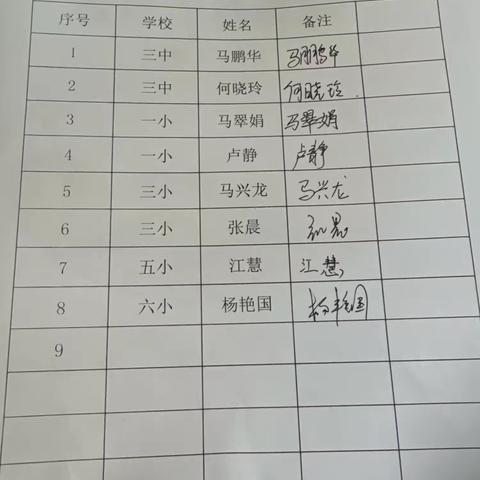 序号 学校 姓名 备注
1 三中 马鹏华 马鹏华
2 三中 何晓玲 何晓玲
3 一小 马翠娟 马翠娟
4 一小 卢静 卢静
5 三小 马兴龙 马兴龙
6 三小 张晨 张晨
7 五小 江慧 江慧
8 六小 杨艳国 杨艳国
9